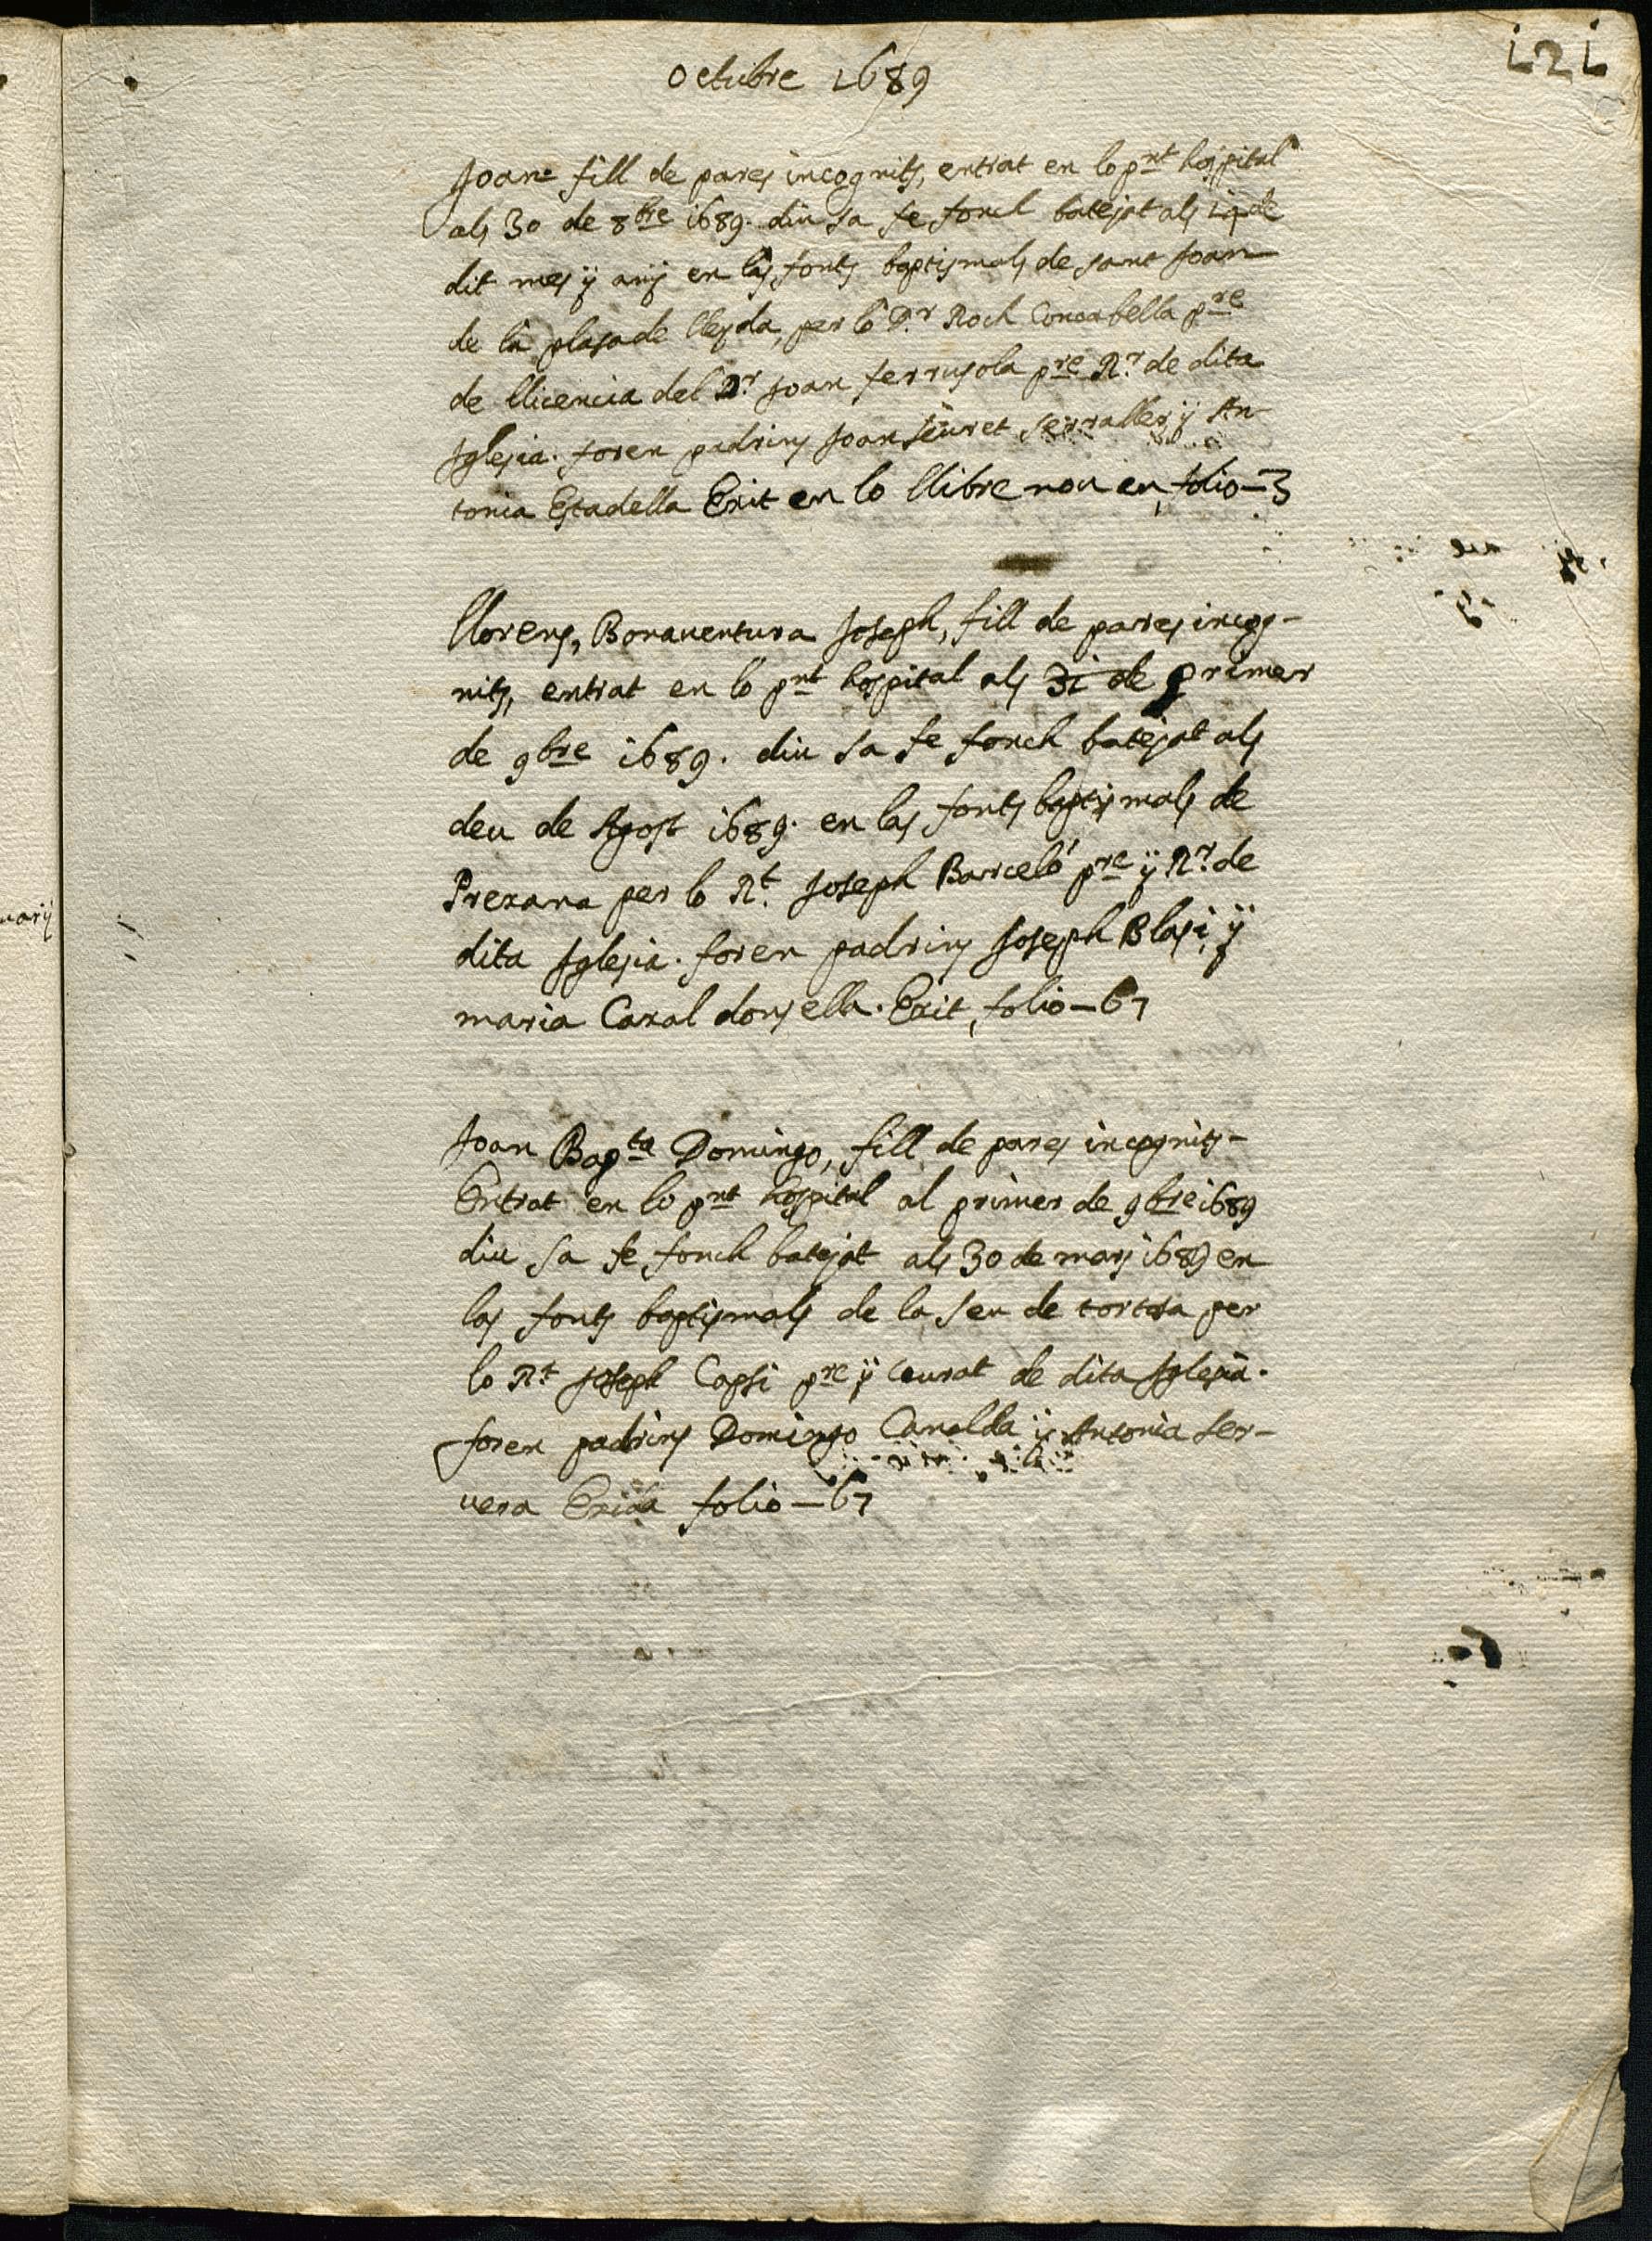 121
Octubre 1689
Joan fill de pares incognits, entrat en lo pnt hospital
als 30 de 8bre 1689. diu sa fe fonch batejat als 14 de
dit mes ÿ anÿ en las fonts baptismals de sant Joan
de la plasa de lleÿda, per lo Dr Roch Concabella pre
de llicencia del Dr Joan ferrusola pre Rr de dita
Iglesia. foren padrins Joan siuret serraller ÿ An-
tonia Estadella Exit en lo llibre nou en folio – 3
llorens, Bonaventura Joseph, fill de pares incog-
nits, entrat en lo pnt hospital als 31 de primer
de 9bre 1689. diu sa fe fonch batejat als
deu de Agost 1689. en las fonts baptismals de
Prexana per lo Rt Joseph Barceló pre ÿ Rr de
dita Iglesia. foren padrins Joseph Blasi, ÿ
maria Caxal donsella. Exit, folio – 67
Joan Bapta Domingo, fill de pares incognits -
Entrat en lo pnt hospital al primer de 9bre 1689
diu sa fe fonch batejat als 30 de mars 1689 en
las fonts baptismals de la seu de tortosa per
lo Rt Joseph Capsi pre ÿ Curat de dita Iglesia.
foren padrins Domingo Canalda ÿ Antonia Ser-
vera Exida folio – 67